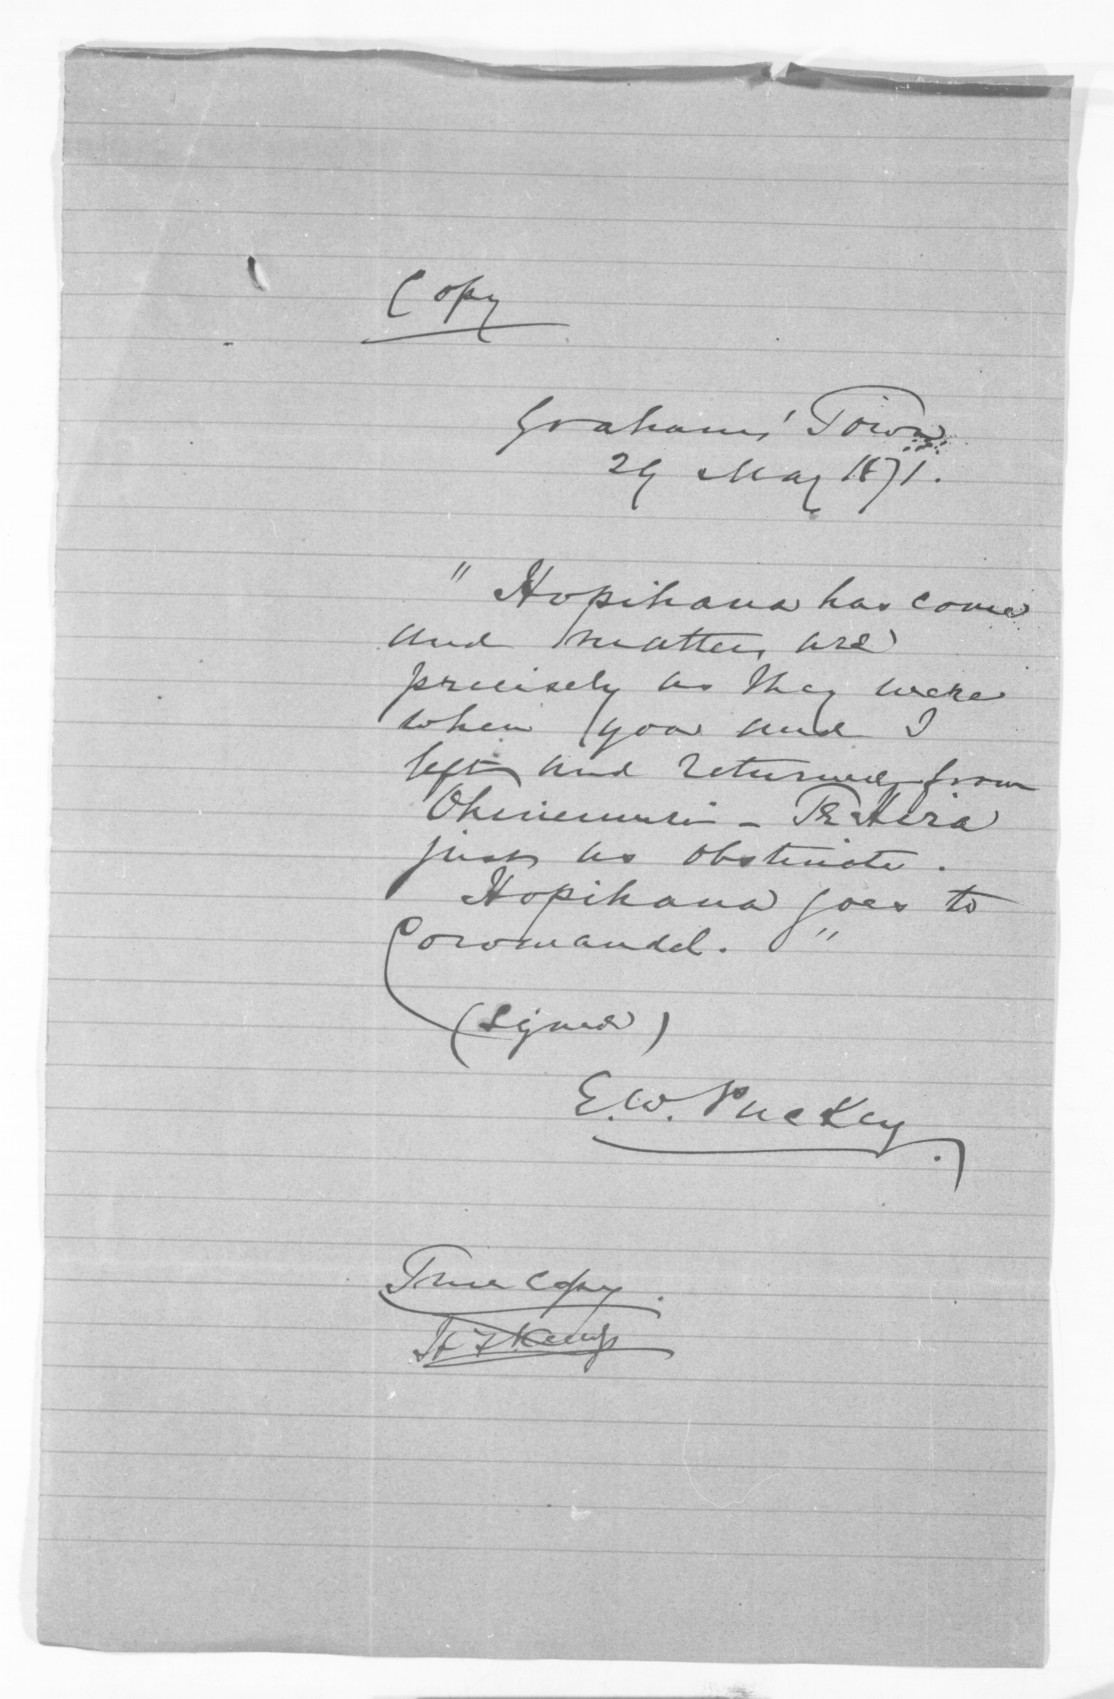 Copy
Grahams' Town
29 May 1871.
" Hopihana has come
and matters are
precisely as they were
when you and I
left and returned from
Ohinemuri - Te Hira
just as obstinate.
Hopihana goes to
Coromandel. "
(signed)
E. W. Puckey.
True copy.